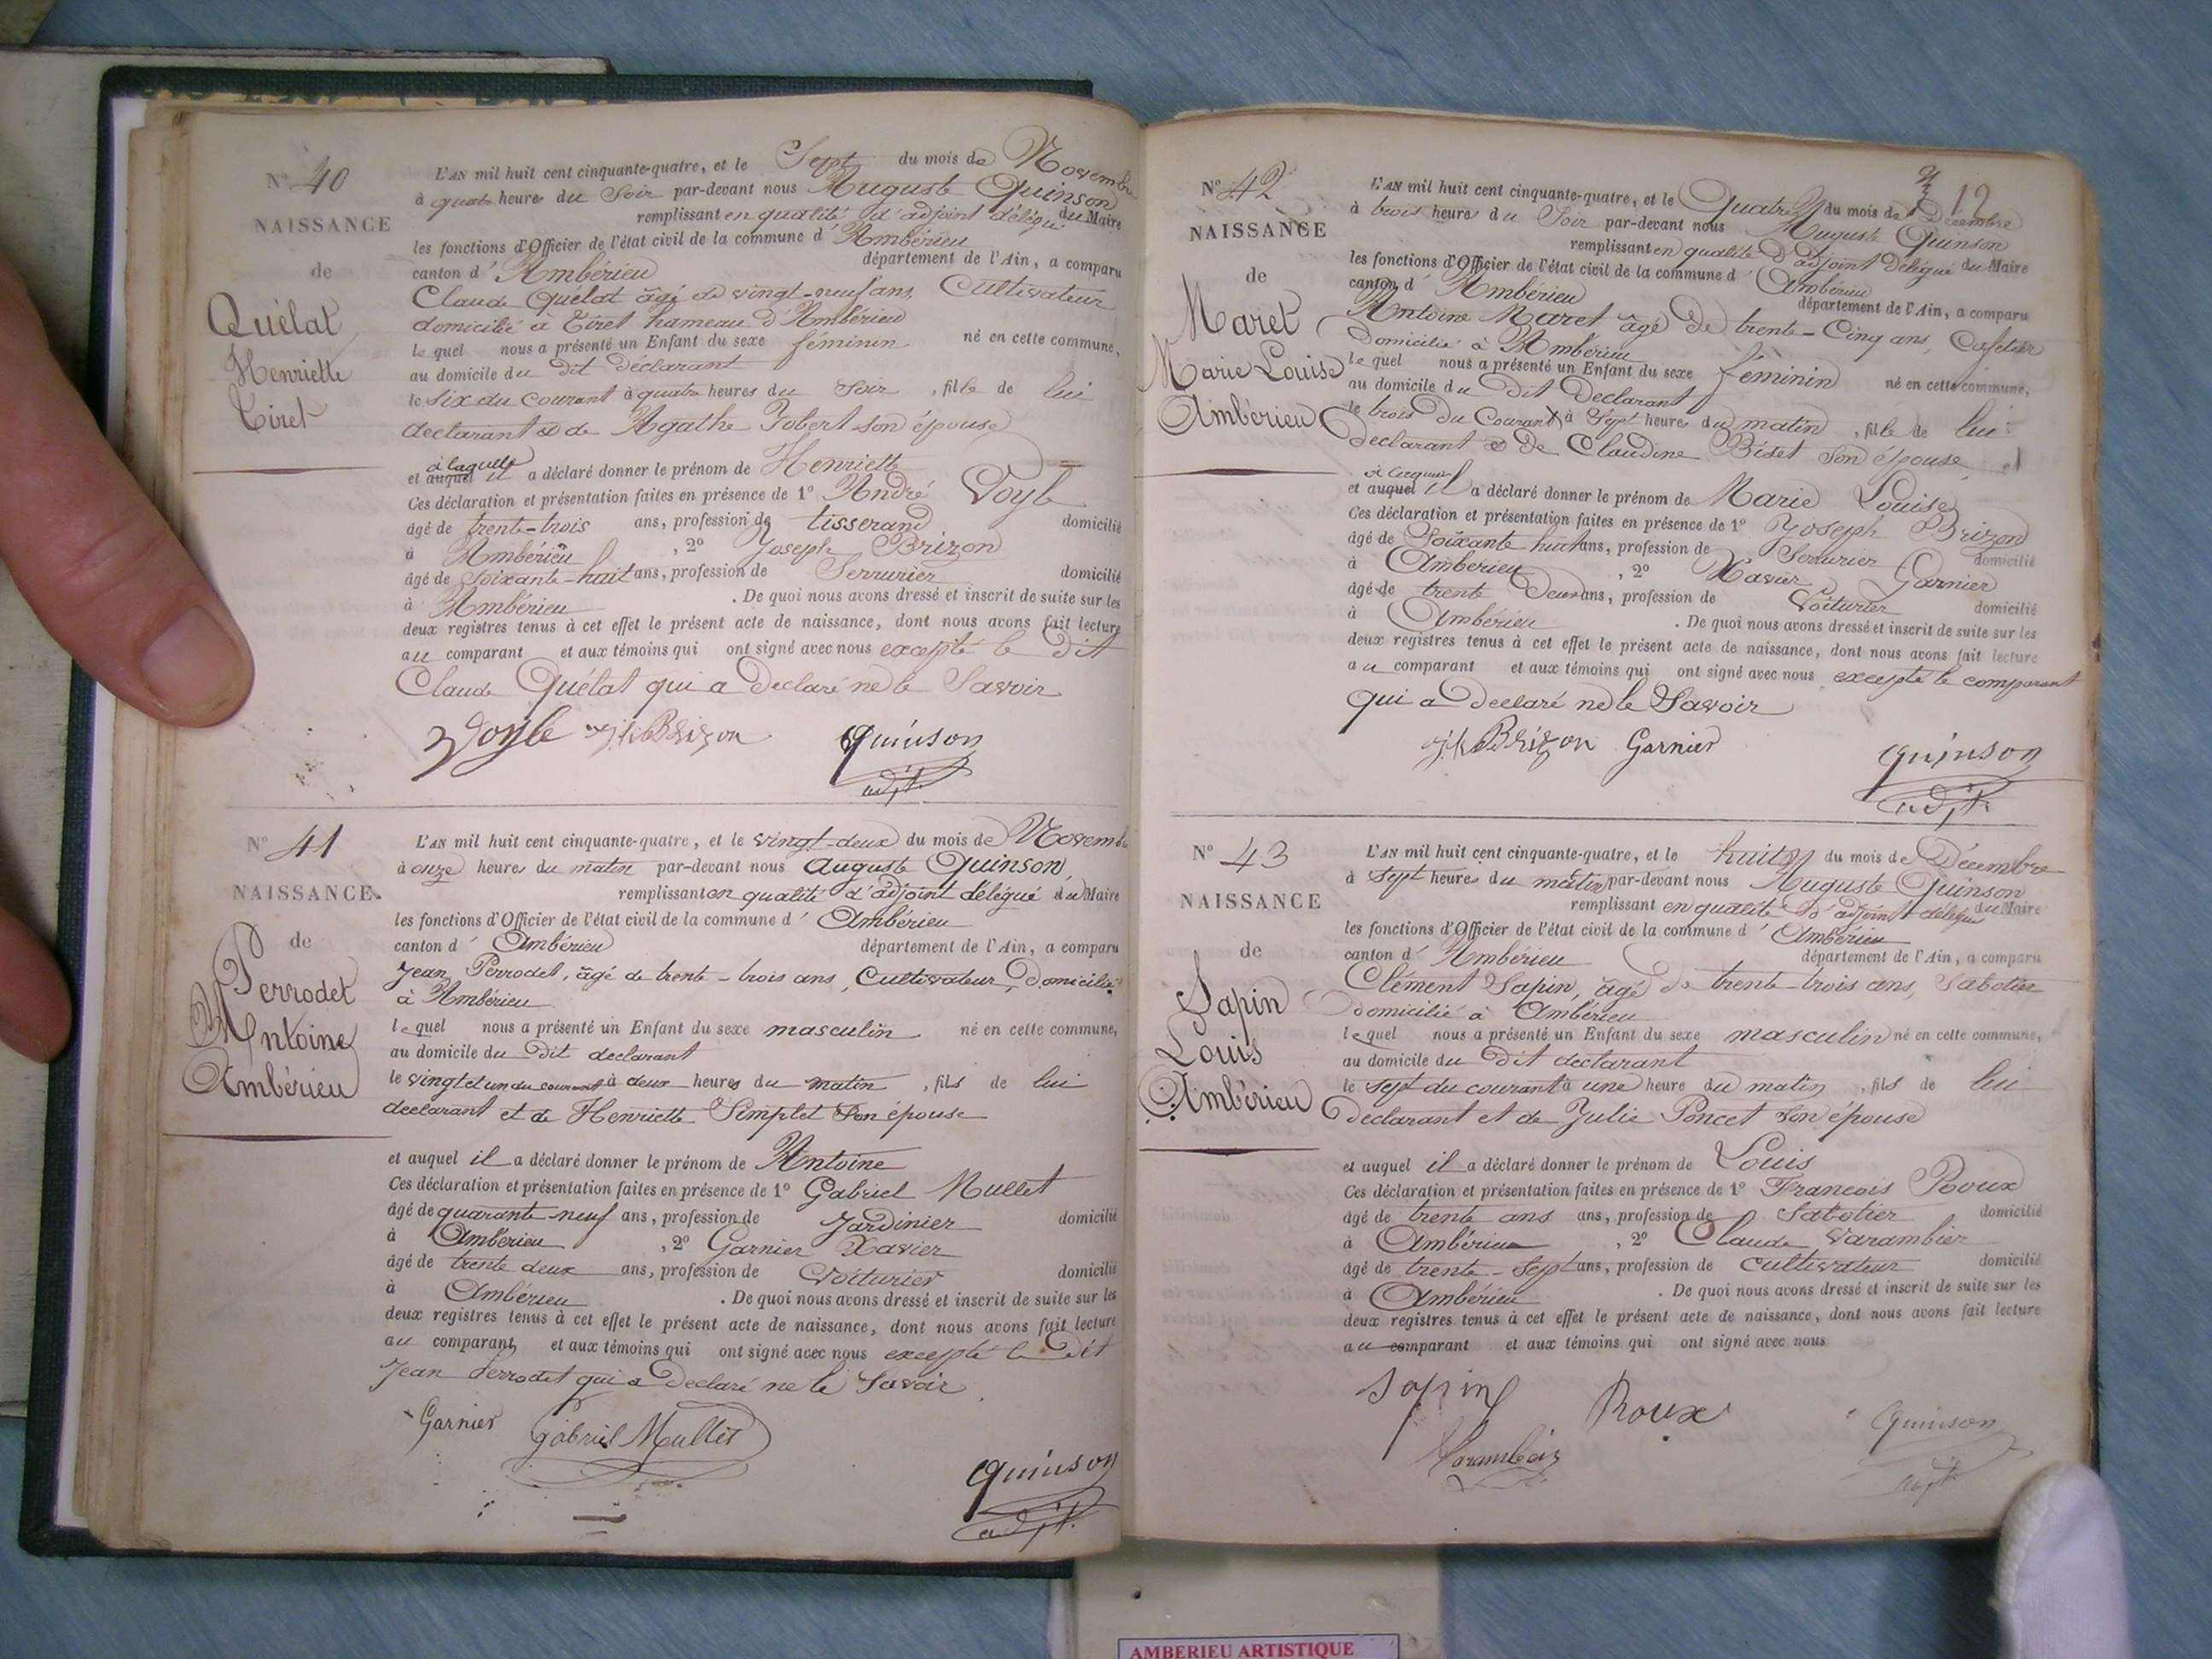 N° 40
NAISSANCE
de
Quélat
Henriette
Tiret
L'AN mil huit cent cinquante-quatre, et le Sept du mois de Novembre
à quatre heures du Soir par-devant nous Auguste Quinson
remplissant en qualité d'adjoint délégué du Maire
les fonctions d'Officier de l'état civil de la commune d'Ambérieu
canton d'Ambérieu département de l'Ain, a comparu
Claude Quélat âgé de vingt-neuf ans, Cultivateur
domicilié à Tiret hameau d'Ambérieu
lequel nous a présenté un Enfant du sexe féminin né en cette commune,
au domicile du dit déclarant
le six du courant à quatre heures du Soir, fille de lui
déclarant et de Agathe Jobert son épouse
à laquelle
et auquel il a déclaré donner le prénom de Henriette
Ces déclaration et présentation faites en présence de 1° André Voyle
âgé de trente-trois ans, profession de tisserand domicilié
à Ambérieu, 2° Joseph Brizon
âgé de Soixante-huit ans, profession de Serrurier domicilié
à Ambérieu. De quoi nous avons dressé et inscrit de suite sur les
deux registres tenus à cet effet le présent acte de naissance, dont nous avons fait lecture
au comparant et aux témoins qui ont signé avec nous excepté le dit
Claude Quélat qui a déclaré ne le Savoir
Voyle Brizon quinson
adjt.
N° 41
NAISSANCE
de
Perrodet
Antoine
Ambérieu
L'AN mil huit cent cinquante-quatre, et le vingt-deux du mois de Novembre
à onze heures du matin par-devant nous Auguste Quinson,
remplissant en qualité d'adjoint délégué du Maire
les fonctions d'Officier de l'état civil de la commune d'Ambérieu
canton d'Ambérieu département de l'Ain, a comparu
Jean Perrodet, âgé de trente-trois ans, Cultivateur, Domicilié
à Ambérieu
lequel nous a présenté un Enfant du sexe masculin né en cette commune,
au domicile du dit declarant
le vingt et un du courant à deux heures du matin, fils de lui
declarant et de Henriette Simplet Son épouse
et auquel il a déclaré donner le prénom de Antoine
Ces déclaration et présentation faites en présence de 1° Gabriel Mullet
âgé de quarante-neuf ans, profession de Jardinier domicilié
à Ambérieu, 2° Garnier Xavier
âgé de trente deux ans, profession de Voiturier domicilié
à Ambérieu. De quoi nous avons dressé et inscrit de suite sur les
deux registres tenus à cet effet le présent acte de naissance, dont nous avons fait lecture
au comparant et aux témoins qui ont signé avec nous excepté le Dit
Jean Perrodet qui a Declaré ne le Savoir
Garnier gabriel Mullet
quinson
adjt.
12
N° 42
NAISSANCE
de
Maret
Marie Louise
Ambérieu
L'AN mil huit cent cinquante-quatre, et le Quatre du mois de Décembre
à trois heures du Soir par-devant nous Auguste Quinson
remplissant en qualité D'adjoint Délégué du Maire
les fonctions d'Officier de l'état civil de la commune d'Ambérieu
canton d'Ambérieu département de l'Ain, a comparu
Antoine Maret âgé De trente-Cinq ans, Cafetier
Domicilié à Ambérieu
lequel nous a présenté un Enfant du sexe féminin né en cette commune,
au domicile du Dit Declarant
le trois Du Courant à Sept heures du matin, fille de lui
Declarant et De Claudine Biset Son épouse
à laquelle
et auquel il a déclaré donner le prénom de Marie Louise
Ces déclaration et présentation faites en présence de 1° Joseph Brizon
âgé de Soixante huit ans, profession de Serrurier domicilié
à Ambérieu, 2° Xavier Garnier
âgé de trente Deux ans, profession de Voiturier domicilié
à Ambérieu. De quoi nous avons dressé et inscrit de suite sur les
deux registres tenus à cet effet le présent acte de naissance, dont nous avons fait lecture
au comparant et aux témoins qui ont signé avec nous excepté le comparant
qui a Declaré ne le Savoir
Brizon Garnier quinson
adjt.
N° 43
NAISSANCE
de
Sapin
Louis
Ambérieu
L'AN mil huit cent cinquante-quatre, et le huit du mois de Décembre
à Sept heures du matin par-devant nous Auguste Quinson
remplissant en qualité D'adjoint délégué du Maire
les fonctions d'Officier de l'état civil de la commune d'Ambérieu
canton d'Ambérieu département de l'Ain, a comparu
Clément Sapin, âgé de trente-trois ans, Sabotier
domicilié à Ambérieu
lequel nous a présenté un Enfant du sexe masculin né en cette commune,
au domicile du Dit declarant
le Sept du courant à une heure du matin, fils de lui
Declarant et de Julie Poncet Son épouse
et auquel il a déclaré donner le prénom de Louis
Ces déclaration et présentation faites en présence de 1° Francois Roux
âgé de trente ans ans, profession de Sabotier domicilié
à Ambérieu, 2° Claude Varambier
âgé de trente-Sept ans, profession de cultivateur domicilié
à Ambérieu. De quoi nous avons dressé et inscrit de suite sur les
deux registres tenus à cet effet le présent acte de naissance, dont nous avons fait lecture
au comparant et aux témoins qui ont signé avec nous
Sapin Roux quinson
adjt
AMBERIEU ARTISTIQUE